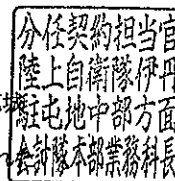 分任契約担当官
陸上自衛隊伊丹
駐屯地中部方面
会計隊本部業務科長